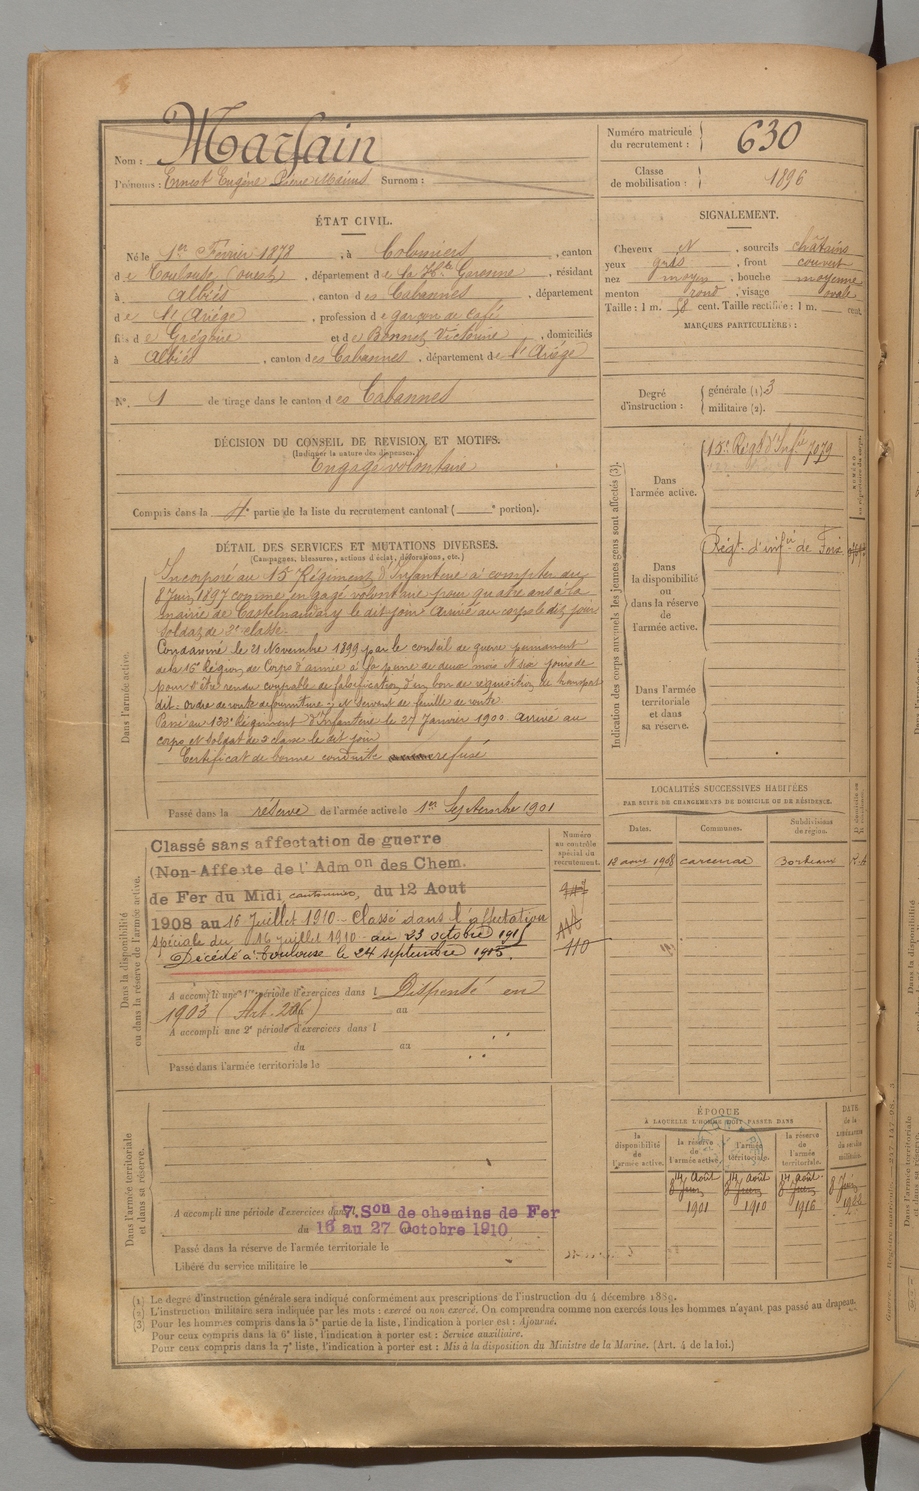 Nom : Marfain
Prénoms : Ernest Eugène Surnom :
Numéro matricule du recrutement : 630
Classe de mobilisation : 1896
ÉTAT CIVIL.
Né le 1er Février 1878, à Colomiers, canton
de Toulouse (ouest), département de la Hte Garonne, résidant
à Albiés, canton des Cabannes, département
de l'Ariège, profession de garçon de café
fils de Grégoire et de Bonnet Victorine, domiciliés
à Albiés, canton des Cabannes, département de l'Ariège
N°. 1 de tirage dans le canton des Cabannes
SIGNALEMENT.
Cheveux N, sourcils châtains
yeux gris, front couvert
nez moyen, bouche moyenne
menton rond, visage ovale
Taille : 1 m. 58 cent. Taille rectifiée : 1 m. cent.
MARQUES PARTICULIÈRES :
Degré d'instruction : générale (1) 3
militaire (2).
DÉCISION DU CONSEIL DE REVISION ET MOTIFS.
(Indiquer la nature des dispenses.)
Engagé volontaire
Compris dans la 4e partie de la liste du recrutement cantonal ( e portion).
DÉTAIL DES SERVICES ET MUTATIONS DIVERSES.
(Campagnes, blessures, actions d'éclat, décorations, etc.)
Dans l'armée active.
Incorporé au 15 Régiment d'Infanterie à compter du
8 Juin 1897 comme engagé volontaire pour quatre ans à la
mairie de Castelnaudary le dit jour. Arrivé au corps le dit jour
soldat de 2e classe.
Condamné le 21 Novembre 1899 par le conseil de guerre permanent
de la 16e Région de Corps d'armée à la peine de deux mois et six jours de
pour s'être rendu coupable de falsification d'un bon de réquisition de transport
dit : ordre de route de fourniture : et servant de feuille de route
Passé au 122e Régiment d'Infanterie le 27 Janvier 1900 Arrivé au
corps et soldat de 2 classe le dit jour
Certificat de bonne conduite refusé
Passé dans la réserve de l'armée active le 1er Septembre 1901
Indication des corps auxquels les jeunes gens sont affectés (3).
Dans l'armée active.
15e Régt d'Infie 7079
Dans la disponibilité ou dans la réserve de l'armée active.
Régt. d'infie de Foix
Dans l'armée territoriale et dans sa réserve.
Dans la disponibilité ou dans la réserve de l'armée active.
Classé sans affectation de guerre
(Non-Affecté de l'Admon des Chem.
de Fer du Midi cantonnier, du 12 Aout
1908 au 15 Juillet 1910 - Classé dans l'affectation
spéciale du 16 juillet 1910 au 23 octobre 1915
Décédé à Toulouse le 24 septembre 1915.
Numéro au contrôle spécial du recrutement.
110
A accompli une 1re période d'exercices dans l Dispensé en
1903 (Art. 206) au
A accompli une 2e période d'exercices dans l
du au
Passé dans l'armée territoriale le
LOCALITÉS SUCCESSIVES HABITÉES
PAR SUITE DE CHANGEMENTS DE DOMICILE OU DE RÉSIDENCE.
Dates. Communes. Subdivisions de région.
12 aout 1908 Carcenac Bordeaux
Dans l'armée territoriale et dans sa réserve.
A accompli une période d'exercices dans l 7. Son de chemins de Fer
du 16 au 27 Octobre 1910
Passé dans la réserve de l'armée territoriale le
Libéré du service militaire le
ÉPOQUE
À LAQUELLE L'HOMME DOIT PASSER DANS
la disponibilité de l'armée active.
la réserve de l'armée active.
l'armée territoriale.
la réserve de l'armée territoriale.
DATE de la LIBÉRATION du service militaire.
14 Août 14 Août 14 Août
8 Juin 8 Juin 8 Juin 8 Juin
1901 1910 1916
(1) Le degré d'instruction générale sera indiqué conformément aux prescriptions de l'instruction du 4 décembre 1889.
(2) L'instruction militaire sera indiquée par les mots : exercé ou non exercé. On comprendra comme non exercés tous les hommes n'ayant pas passé au drapeau.
(3) Pour les hommes compris dans la 5e partie de la liste, l'indication à porter est : Ajourné.
Pour ceux compris dans la 6e liste, l'indication à porter est : Service auxiliaire.
Pour ceux compris dans la 7e liste, l'indication à porter est : Mis à la disposition du Ministre de la Marine. (Art. 4 de la loi.)